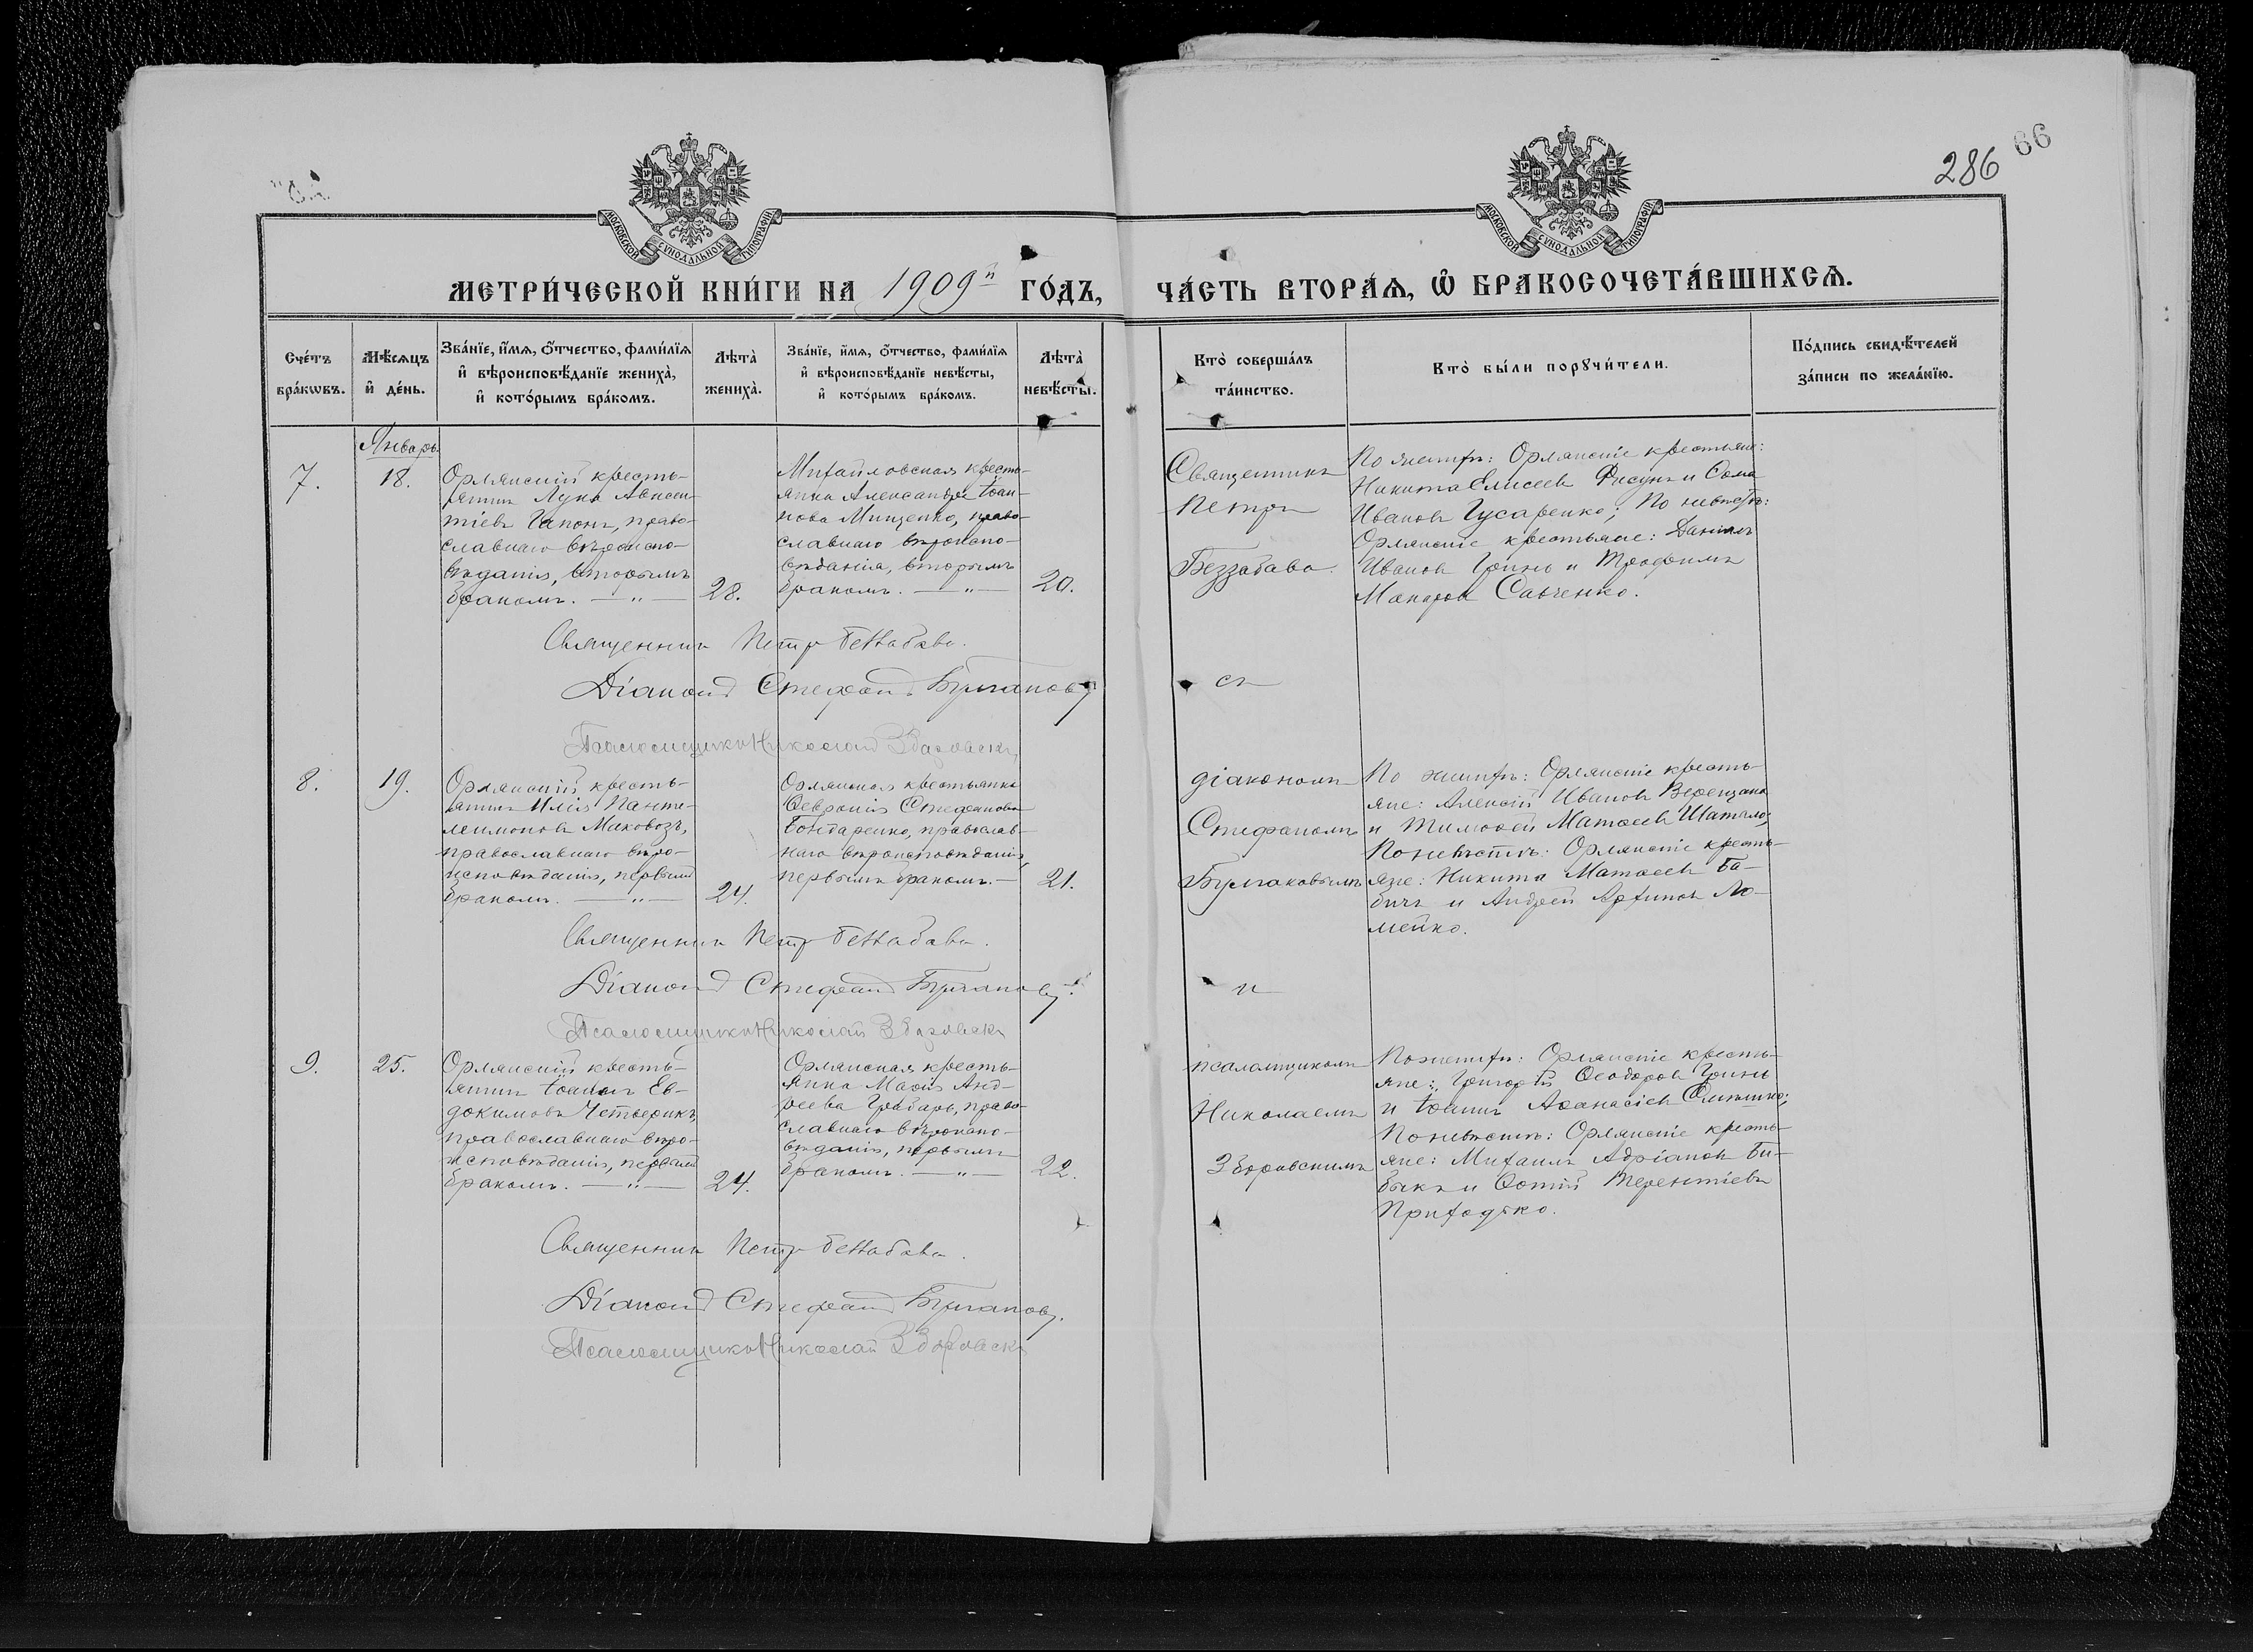 286 66
МОСКОВСКОЙ СУНОДАЛЬНОЙ ТИПОГРАФІИ
МОСКОВСКОЙ СУНОДАЛЬНОЙ ТИПОГРАФІИ
МЕТРИ́ЧЕСКОЙ КНИ́ГИ НА 1909й ГО́ДЪ,
ЧА́СТЬ ВТОРА́Ѧ, Ѡ҆ БРАКОСОЧЕТА́ВШИХСѦ.
Сче́тъ
бра́кѡвъ.
Мѣ́сѧцъ
и҆ де́нь.
Зва́нїе, и҆́мѧ, ѻ҆́тчество, фами́лїѧ
и҆ вѣроисповѣ́данїе жениха̀,
и҆ кото́рымъ бра́комъ.
Лѣта̀
жениха̀.
Зва́нїе, и҆́мѧ, ѻ҆́тчество, фами́лїѧ
и҆ вѣроисповѣ́данїе невѣ́сты,
и҆ кото́рымъ бра́комъ.
Лѣта̀
невѣ́сты.
Кто̀ соверша́лъ
та́инство.
Кто̀ бы́ли порꙋчи́тели.
По́дпись свидѣ́телей
за́писи по жела́нїю.
Январь
7.
18.
Орлянскій кресть-
янинъ Лука Авксен-
тіевъ Гапонъ, право-
славнаго вѣроиспо-
вѣданія, вторымъ
бракомъ. — „ —
28.
Михайловская кресть-
янка Александра Іоан-
нова Мищенко, право-
славнаго вѣроиспо-
вѣданія, вторымъ
бракомъ. — „ —
20.
Священникъ
Петръ
Беззабава
По женихѣ: Орлянскіе крестьяне:
Никита Елисеевъ Рясунъ и Сома
Ивановъ Гусаренко; По невѣстѣ:
Орлянскіе крестьяне: Даніилъ
Ивановъ Гринь и Трофимъ
Макаровъ Савченко.
Священникъ Петръ Беззабава.
Діаконъ Стефанъ Булгаковъ
съ
Псаломщикъ Николай Збаровскій
8.
19.
Орлянскій кресть-
янинъ Илія Панте-
леимоновъ Маковозъ,
православнаго вѣро-
исповѣданія, первымъ
бракомъ. — „ —
24.
Орлянская крестьянка
Ѳевронія Стефанова
Бондаренко, православ-
наго вѣроисповѣданія,
первымъ бракомъ. —
21.
діакономъ
Стефаномъ
Булгаковымъ
По женихѣ: Орлянскіе кресть-
яне: Алексій Ивановъ Верещака
и Тимоѳей Матѳеевъ Шатило;
По невѣстѣ: Орлянскіе кресть-
яне: Никита Матѳеевъ Ба-
бичъ и Андрей Архиповъ Ло-
мейко.
Священникъ Петръ Беззабава.
Діаконъ Стефанъ Булгаковъ.
и
Псаломщикъ Николай Збаровскій
9.
25.
Орлянскій кресть-
янинъ Іоаннъ Ев-
докимовъ Четверикъ,
православнаго вѣро-
исповѣданія, первымъ
бракомъ. — „ —
24.
Орлянская кресть-
янка Марія Анд-
реева Грабарь, право-
славнаго вѣроиспо-
вѣданія, первымъ
бракомъ. — „ —
22.
псаломщикомъ
Николаемъ
Збаровскимъ
По женихѣ: Орлянскіе кресть-
яне: Григорій Ѳеодоровъ Гринь
и Іоаннъ Аѳанасіевъ
По невѣстѣ: Орлянскіе кресть-
яне: Михаилъ Адріановъ Би-
быкъ и Фотій Терентіевъ
Приходько.
Священникъ Петръ Беззабава.
Діаконъ Стефанъ Булгаковъ.
Псаломщикъ Николай Збаровскій